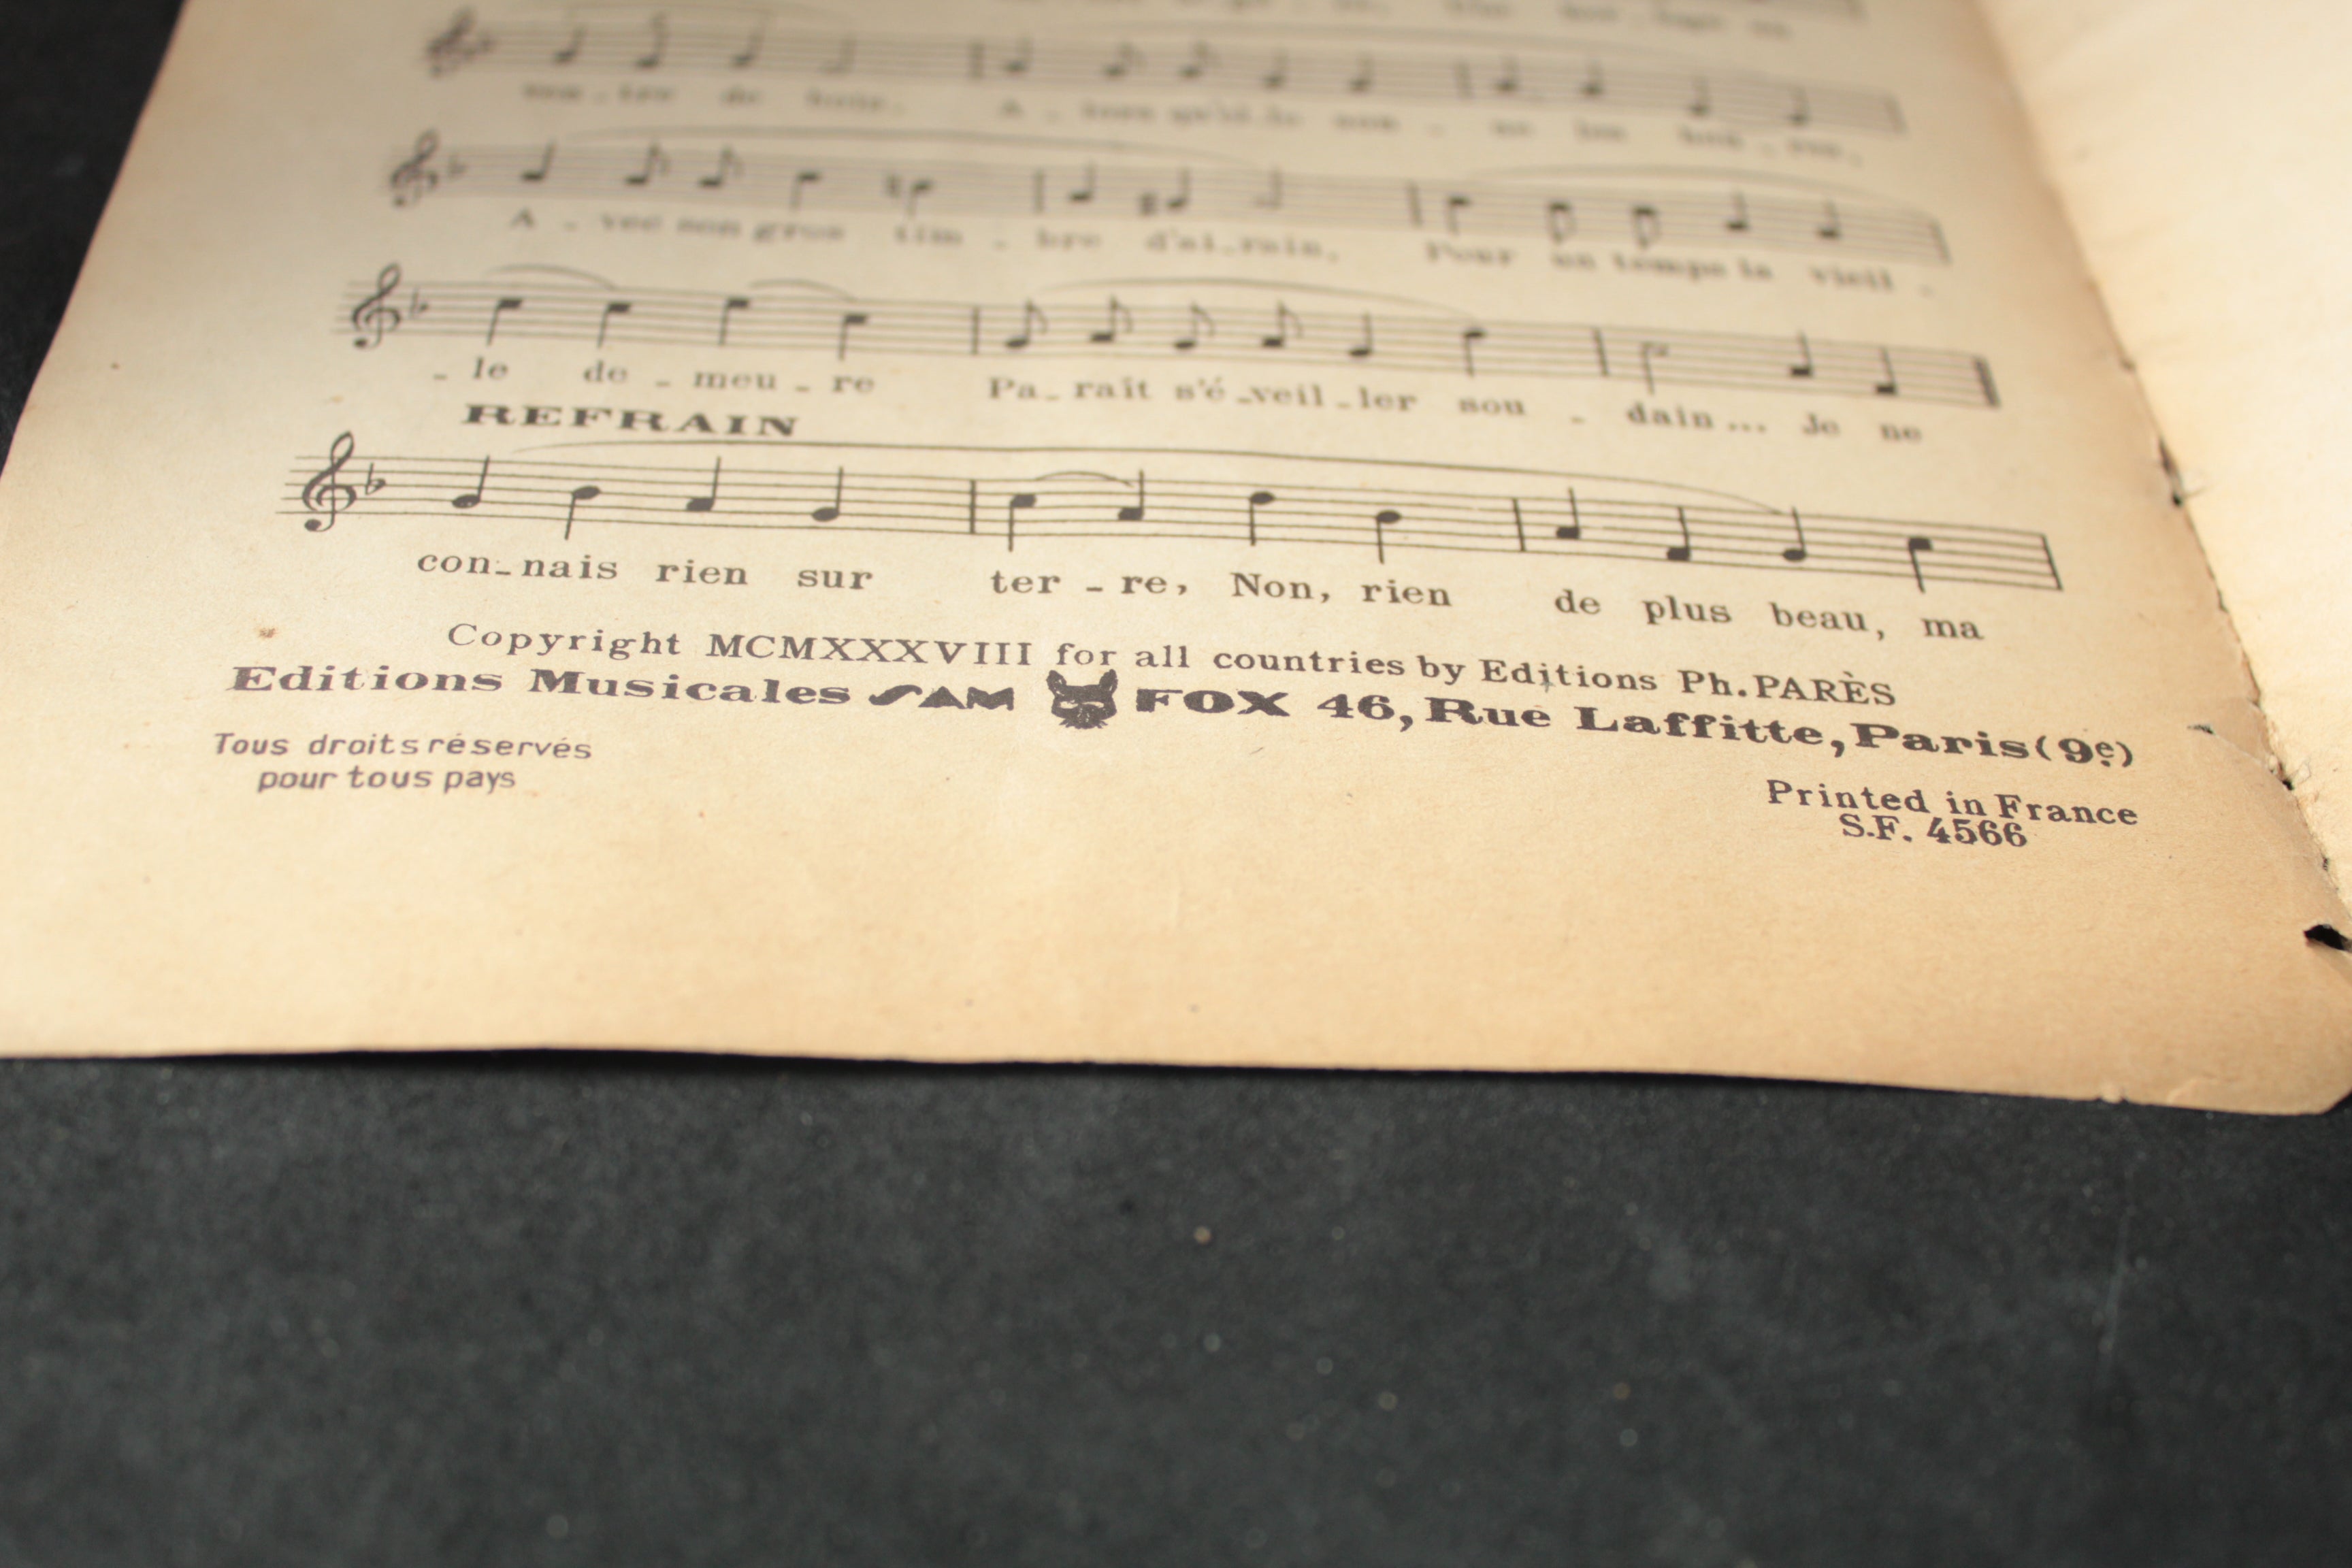 A - vec son gros tim - bre d'ai-rain, Pour un temps la vieil -
- le de - meu - re Pa - raît s'é - veil - ler sou - dain... Je ne
REFRAIN
con - nais rien sur ter - re, Non, rien de plus beau, ma
Copyright MCMXXXVIII for all countries by Editions Ph. PARÈS
Editions Musicales SAM FOX 46, Rue Laffitte, Paris (9e)
Tous droits réservés
pour tous pays
Printed in France
S.F. 4566